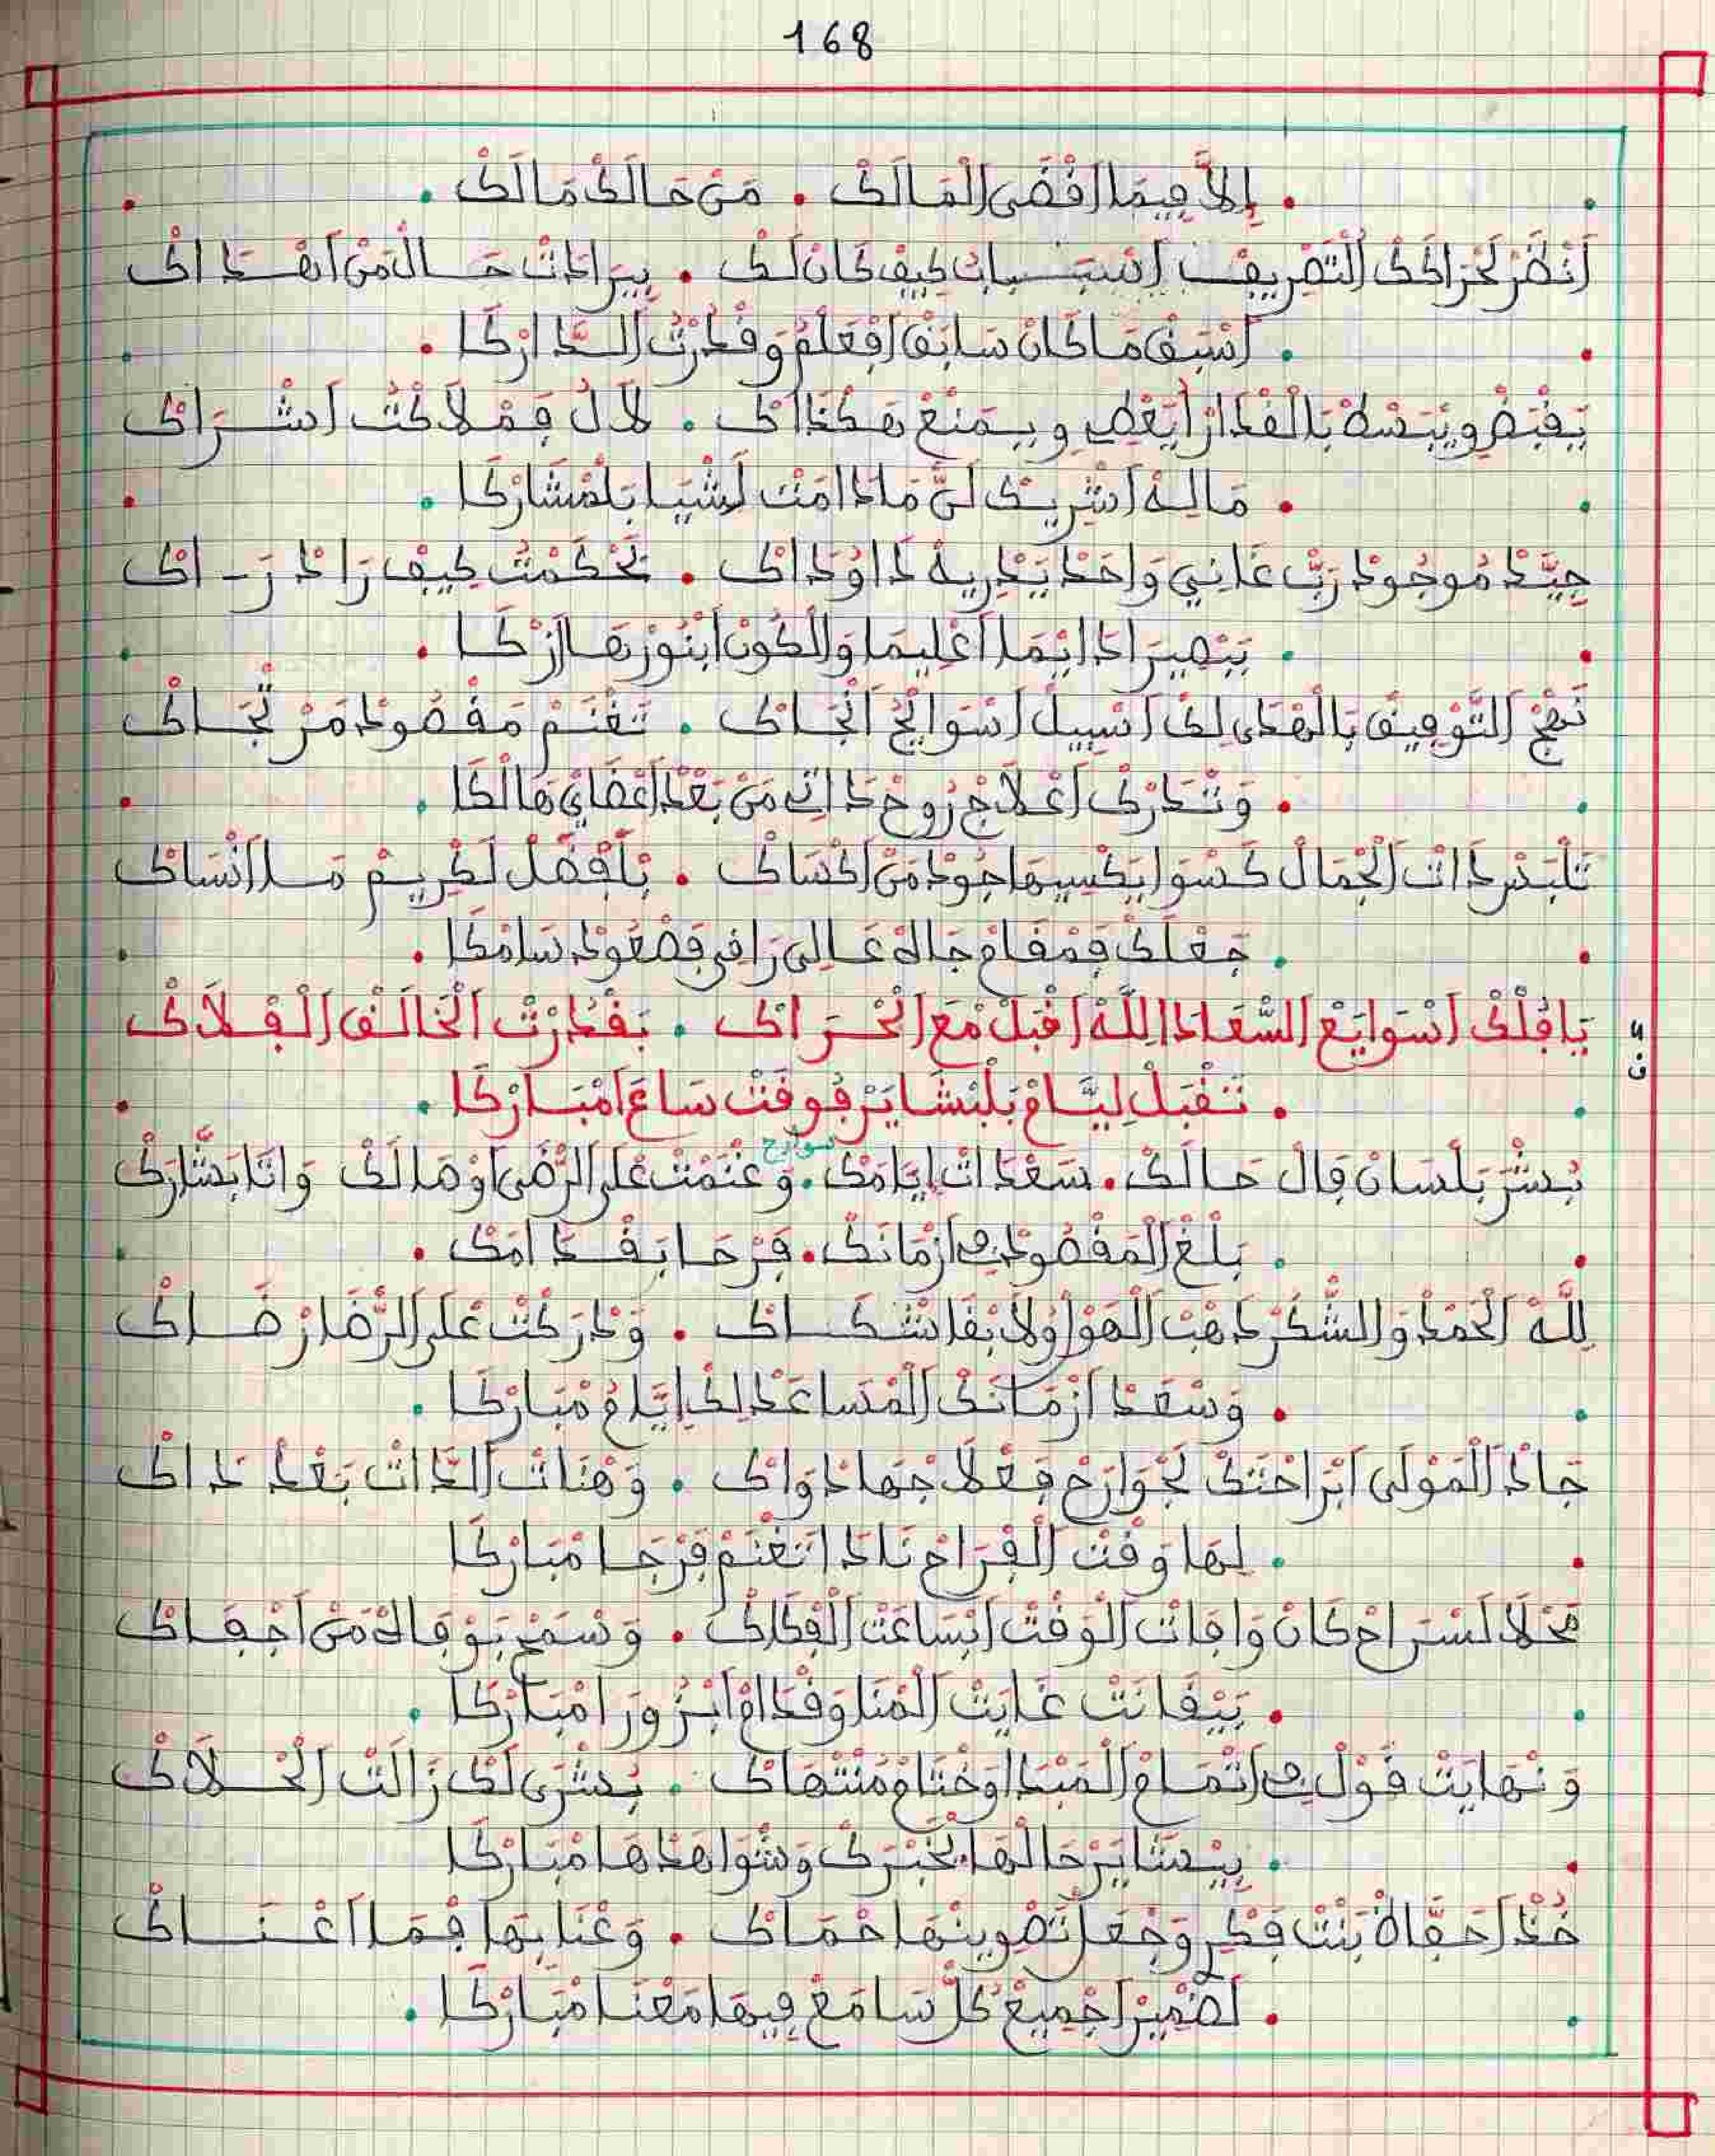 168
إلاَّ فيمَا اقْضَى الْمَالَكْ • مَنْ حَالَكْ مَالَكْ
أَنْضَرْ لَحْرَاكَكْ التَّصْرِيفْ اسْبَـبَابْ كِيفْ كَانْ لَكْ • بِيرَادَتْ حَـالْ مَنْ اهْـدَاكْ
اسْبَقْ مَا كَانْ سَابَقْ افْعَلْمُ وَقُدْرْتُ الـدَّارْكَا
يَقْبَضْ وِيَبْسَطْ بَالْقْدَارْ ايَعْطِي وِيـمْنَعْ هَكْذَاكْ • لاَلُ فَمْلاَكْتُ اشْـرَاكْ
مَالِهْ اشْرِيـكْ لَنَّ مَادَامَتْ لَشْيَا بَلْمْشَارْكَا
جِيَّدْ مُوجُودْ رَبّْ غَانِي وَاحَدْ يَدْرِيهْ دَاوْدَاكْ • تَحْكَمْتُ كِيفْ رَادْ رَـاكْ
بَبْصِيرَا دَايْمَا اعْلِيمَا وَالْكُونْ ابْنُورْهَا ازْكَـا
نَهْجْ التَّوْفِيقْ بَالْهْدَى لِكْ اسْبِيلْ اسْوَايْحْ انْجَـاكْ • تَغْنَمْ مَقْصُودْ مَرْتْجَـاكْ
وَتْـدَرْكْ اعْلاَجْ رُوحْ دَاتِي مَنْ بَعْدْ اعْضَايْ هَالْكَا
تَلْبَسْ دَاتْ الْجْمَالْ كَسْوَا يَكْسِيهَا جُودْ مَنْ اكْسَاكْ • بَافْضَلْ لَكْرِيـمْ مَـا انْسَاكْ
جَعْلَكْ فَمْقَامْ جَاهْ عَـالِي رَاقِي فَصْعُودْ سَامْكَا
يَا قَلْكْ اسْوَايَعْ السّْعَادَا اللَّهْ اقْبَلْ مْعَ الْحْـرَاكْ • بَقْدَرْتْ الْخَالَقْ الْفْلاَكْ
تَـقْبَلْ لِيَّـامْ بَلْبْشَايَرْ فُوقَتْ سَاعَ امْبَـارْكَا
بُـشْرَ بَلْسَانْ قَالْ حَـالَكْ • سَعْدَاتْ ايَّامَكْ • وَغْنَمْتْ عْلَى الرّْضَى اوْهَـالَكْ وَانَا بَشَّارَكْ
سوارح
بَلْغْ الْمَقْصُودْ فِي ازْمَانَكْ • فَرْحَا بَـقْـدَامَكْ
لِلَّـهْ الْحَمْدْ وَالشُّكْرْ دْهَبْ الْهْوَا وْلاَ بْقَا شْـكَـاكْ • وَدْرَكْتْ عْلَى الرّْضَا رْضَـاكْ
وَسْعَدْ ازْمَـانَكْ الْمْسَاعَدْ لِكْ ايَّامْ مْبَـارْكَا
جَادْ الْمَوْلَى ابْرَاحْتَكْ لَجْوَارَحْ فَعْلاَجْهَا دْوَاكْ • وَهْنَاتْ الـدَّاتْ بَعْدْ دَاكْ
لِهَا وَقْتْ الْفْرَاحْ نَادَا تَغْنَمْ فَرْحَـا مْبَارْكَا
مَحْلاَ لَسْـرَاحْ كَانْ وَافَاتْ الْوَقْتْ ابْسَاعَتْ الْفْكَاكْ • وَسْمَحْ بَوْفَاهْ مَنْ اجْفَـاكْ
بَيْقَانَتْ غَايَتْ الْمْنَا وَقْدَامْ ابْـرُورَا مْبَـارْكَا
وَنْهَايَتْ قَوْلْ فِي اتْمَـامْ الْمَبْدَا وَخْتَامْ مُنْتَهَاكْ • بُـشْرَى لَكْ زَالَتْ الْحْـلاَكْ
بِبْـشَايَرْ حَالْهَا • لْخَبْرَكْ وَشْوَاهَدْهَا مْبَـارْكَا
خُذْ احَفَّاظْ بَنْتْ فَكْرِي وَجْعَلْ تَصْوِينْهَا حْمَاكْ • وَعْنَايْتْهَا فْمَا اعْـنَـاكْ
لَضْمِيرْ اجْمِيعْ كُلّْ سَامَعْ فِيهَا مَعْنَـا مْبَـارْكَا